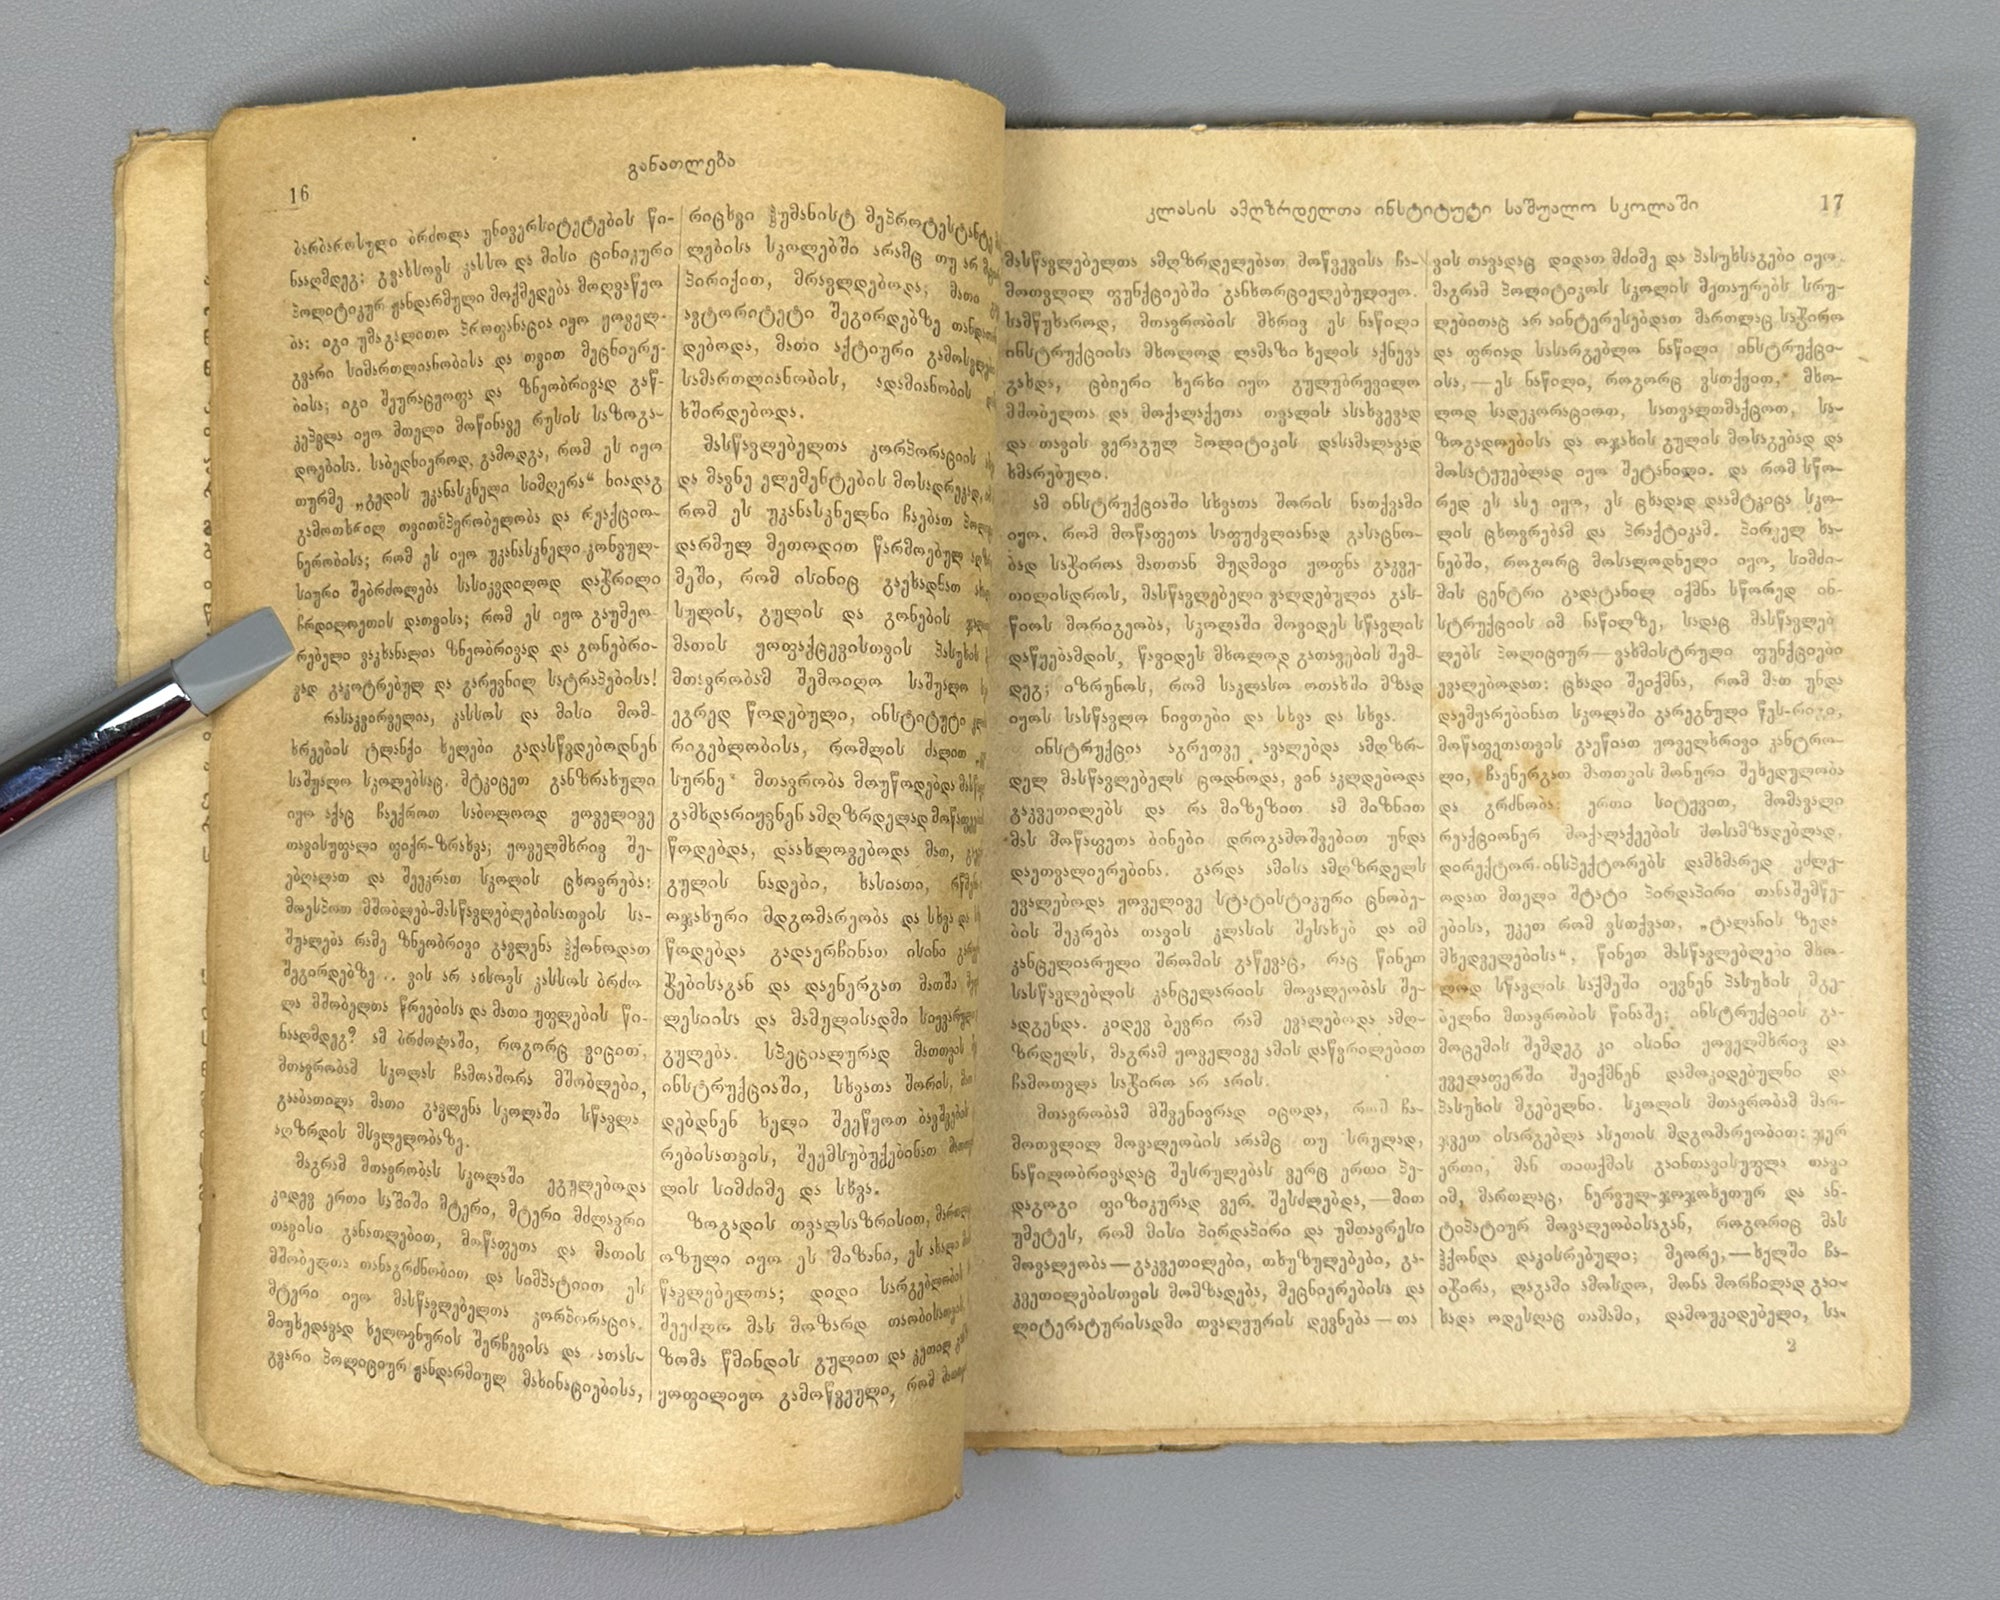 16
განათლება
ბარბაროსული ბრძოლა უნივერსიტეტების წი-
ნააღმდეგ; გვახსოვს კასსო და მისი ცინიკური
პოლიტიკურ ჟანდარმული მოქმედება მოღვაწეო
ბა: იგი უმაგალითო პროფანაცია იყო ყოველ-
გვარი სიმართლიანობისა და თვით მეცნიერე-
ბისა; იგი შეურაცყოფა და ზნეობრივად გაწ-
კეპვლა იყო მთელი მოწინავე რუსის საზოგა-
დოებისა. საბედნიეროდ, გამოდგა, რომ ეს იყო
თურმე „გედის უკანასკნელი სიმღერა“ ხიადაგ
გამოთხრილ თვითმპყრობელობა და რეაქციო-
ნერობისა; რომ ეს იყო უკანასკნელი კონვულ-
სიური შებრძოლება სასიკვდილოდ დაჭრილი
ჩრდილოეთის დათვისა; რომ ეს იყო გაუმეო-
რებელი ვაკხანალია ზნეობრივად და გონებრი-
ვად გაკოტრებულ და გარეგნილ სატრაპებისა!
რასაკვირველია, კასსოს და მისი მომ-
ხრეების ტლანქი ხელები გადასწვდებოდნენ
საშუალო სკოლებსაც. მტკიცეთ განზრახული
იყო აქაც ჩაექროთ საბოლოოდ ყოველივე
თავისუფალი ფიქრ-ზრახვა; ყოველმხრივ შე-
ებღალათ და შეეკრათ სკოლის ცხოვრება:
მოესპოთ მშობლებ-მასწავლებლებისათვის სა-
შუალება რამე ზნეობრივი გავლენა ჰქონოდათ
შეგირდებზე... ვის არ ახსოვს კასსოს ბრძო
ლა მშობელთა წრეებისა და მათი უფლების წი-
ნააღმდეგ? ამ ბრძოლაში, როგორც ვიცით,
მთავრობამ სკოლას ჩამოაშორა მშობლები,
გააბათილა მათი გავლენა სკოლაში სწავლა
აღზრდის მსვლელობაზე.
მაგრამ მთავრობას სკოლაში ეგულებოდა
კიდევ ერთი საშიში მტერი, მტერი მძლავრი
თავისი განათლებით, მოწაფეთა და მათის
მშობელთა თანაგრძნობით და სიმპატიით ეს
მტერი იყო მასწავლებელთა კორპორაცია.
მიუხედავად ხელოვნურის შერჩევისა და ათას-
გვარი პოლიციურ ჟანდარმიულ მახინაციებისა,
რიცხვი ჰუმანისტ მეპროტესტანტე
ლებისა სკოლებში არამც თუ არ
პირიქით, მრავლდებოდა; მათი
ავტორიტეტი შეგირდებზე
დებოდა, მათი აქტიური
სამართლიანობის, ადამიანობის
ხშირდებოდა.
მასწავლებელთა კორპორაციის
და მავნე ელემენტების მოსადრეკად,
რომ ეს უკანასკნელნი ჩაებათ
დარმულ მეთოდით წარმოებულ
მეში, რომ ისინიც გაეხადნათ
სულის, გულის და გონების
მათის ყოფაქცევისთვის პასუხის
მთავრობამ შემოიღო საშუალო
ეგრედ წოდებული, ინსტიტუტი
რიგებლობისა, რომლის ძალით
სურნე" მთავრობა მოუწოდებდა
გამხდარიყვნენ ამღზრდელად
წოდებდა, დაახლოვებოდა მათ,
გულის ნადები, ხასიათი,
ოჯახური მდგომარეობა და სხვა და
წოდებდა გადაერჩინათ ისინი
ჭებისაგან და დაენერგათ მათში
ლესიისა და მამულისადმი
გულება. სპეციალურად მათთვის
ინსტრუქციაში, სხვათა შორის,
დებდნენ ხელი შეეწყოთ
რებისათვის, შეემსუბუქებინათ
ლის სიმძიმე და სხვა.
ზოგადის თვალსაზრისით,
ოზული იყო ეს მიზანი, ეს
წავლებელთა; დიდი სარგებლობის
შეეძლო მას მოზარდ თაობისათვის
ზომა წმინდის გულით და კეთილ
ყოფილიყო გამოწვეული, რომ
კლასის ამღზრდელთა ინსტიტუტი საშუალო სკოლაში
17
მასწავლებელთა ამღზრდელებათ მოწვევისა ჩა-
მოთვლილ ფუნქციებში განხორციელებულიყო.
სამწუხაროდ, მთავრობის მხრივ ეს ნაწილი
ინსტრუქციისა მხოლოდ ლამაზი ხელის აქნევა
გახდა, ცბიერი ხერხი იყო გულუბრყვილო
მშობელთა და მოქალაქეთა თვალის ასახვევად
და თავის ვერაგულ პოლიტიკის დასამალავად
ხმარებული.
ამ ინსტრუქციაში სხვათა შორის ნათქვამი
იყო, რომ მოწაფეთა საფუძვლიანად გასაცნო-
ბად საჭიროა მათთან მუდმივი ყოფნა გაკვე-
თილისდროს, მასწავლებელი ვალდებულია გას-
წიოს მორიგეობა, სკოლაში მოვიდეს სწავლის
დაწყებამდის, წავიდეს მხოლოდ გათავების შემ-
დეგ; იზრუნოს, რომ საკლასო ოთახში მზად
იყოს სასწავლო ნივთები და სხვა და სხვა.
ინსტრუქცია აგრეთვე ავალებდა ამღზრ-
დელ მასწავლებელს ცოდნოდა, ვინ აკლდებოდა
გაკვეთილებს და რა მიზეზით ამ მიზნით
მას მოწაფეთა ბინები დროგამოშვებით უნდა
დაეთვალიერებინა. გარდა ამისა ამღზრდელს
ევალებოდა ყოველივე სტატისტიკური ცნობე-
ბის შეკრება თავის კლასის შესახებ და იმ
კანცელიარული შრომის გაწევაც, რაც წინეთ
სასწავლებლის კანცელარიის მოვალეობას შე-
ადგენდა. კიდევ ბევრი რამ ევალებოდა ამღ-
ზრდელს, მაგრამ ყოველივე ამის დაწვრილებით
ჩამოთვლა საჭირო არ არის.
მთავრობამ მშვენივრად იცოდა, რომ ჩა-
მოთვლილ მოვალეობის არამც თუ სრულად,
ნაწილობრივადაც შესრულებას ვერც ერთი პე-
დაგოგი ფიზიკურად ვერ შესძლებდა,—მით
უმეტეს, რომ მისი პირდაპირი და უმთავრესი
მოვალეობა—გაკვეთილები, თხუზულებები, გა-
კვეთილებისთვის მომზადება, მეცნიერებისა და
ლიტერატურისადმი თვალყურის დევნება—თა
ვის თავადაც დიდათ მძიმე და პასუხსაგები იყო.
მაგრამ პოლიტიკოს სკოლის მეთაურებს სრუ-
ლებითაც არ აინტერესებდათ მართლაც საჭირო
და ფრიად სასარგებლო ნაწილი ინსტრუქცი-
ისა,—ეს ნაწილი, როგორც ვსთქვით, მხო-
ლოდ სადეკორაციოთ, სათვალთმაქცოთ, სა-
ზოგადოებისა და ოჯახის გულის მოსაგებად და
მოსატყუებლად იყო შეტანილი. და რომ სწო-
რედ ეს ასე იყო, ეს ცხადად დაამტკიცა სკო-
ლის ცხოვრებამ და პრაქტიკამ. პირველ ხა-
ნებში, როგორც მოსალოდნელი იყო, სიმძი-
მის ცენტრი გადატანილ იქმნა სწორედ ინ-
სტრუქციის იმ ნაწილზე, სადაც მასწავლებ
ლებს პოლიციურ—ვახმისტრული ფუნქციები
ევალებოდათ: ცხადი შეიქმნა, რომ მათ უნდა
დაემყარებინათ სკოლაში გარეგნული წეს-რიგი,
მოწაფეთათვის გაეწიათ ყოველხრივი კანტრო-
ლი, ჩაენერგათ მათთვის მონური შეხედულობა
და გრძნობა: ერთი სიტყვით, მომავალი
რეაქციონერ მოქალაქეების მოსამზადებლად,
დირექტორ-ინსპექტორებს დამხმარედ ეძლე-
ოდათ მთელი შტატი პირდაპირი თანაშემწე-
ებისა, უკეთ რომ ვსთქვათ, „ტალანის ზედა
მხედველებისა“, წინეთ მასწავლებლები მხო-
ლოდ სწავლის საქმეში იყვნენ პასუხის მგე-
ბელნი მთავრობის წინაშე; ინსტრუქციის გა-
მოცემის შემდეგ კი ისინი ყოველმხრივ და
ყველაფერში შეიქმნენ დამოკიდებულნი და
პასუხის მგებელნი. სკოლის მთავრობამ მარ-
ჯვეთ ისარგებლა ასეთის მდგომარეობით: ჯერ
ერთი, მან თითქმის გაინთავისუფლა თავი
იმ, მართლაც, ნერვულ-ჯოჯოხეთურ და ან-
ტიპატიურ მოვალეობისაგან, როგორიც მას
ჰქონდა დაკისრებული; მეორე,—ხელში ჩა-
იჭირა, ლაგამი ამოსდო, მონა მორჩილად გაი-
ხადა ოდესღაც თამამი, დამოუკიდებელი, სა-
2